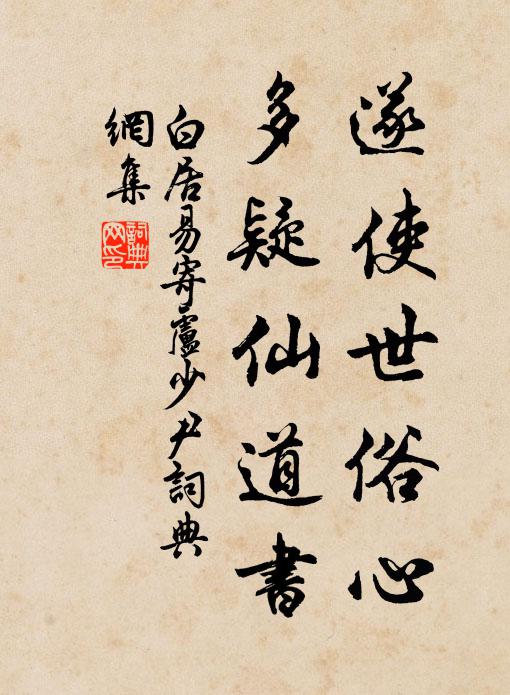 遂使世俗心
多疑仙道書
白居易寄盧少尹詞典
網集
詞典
网印